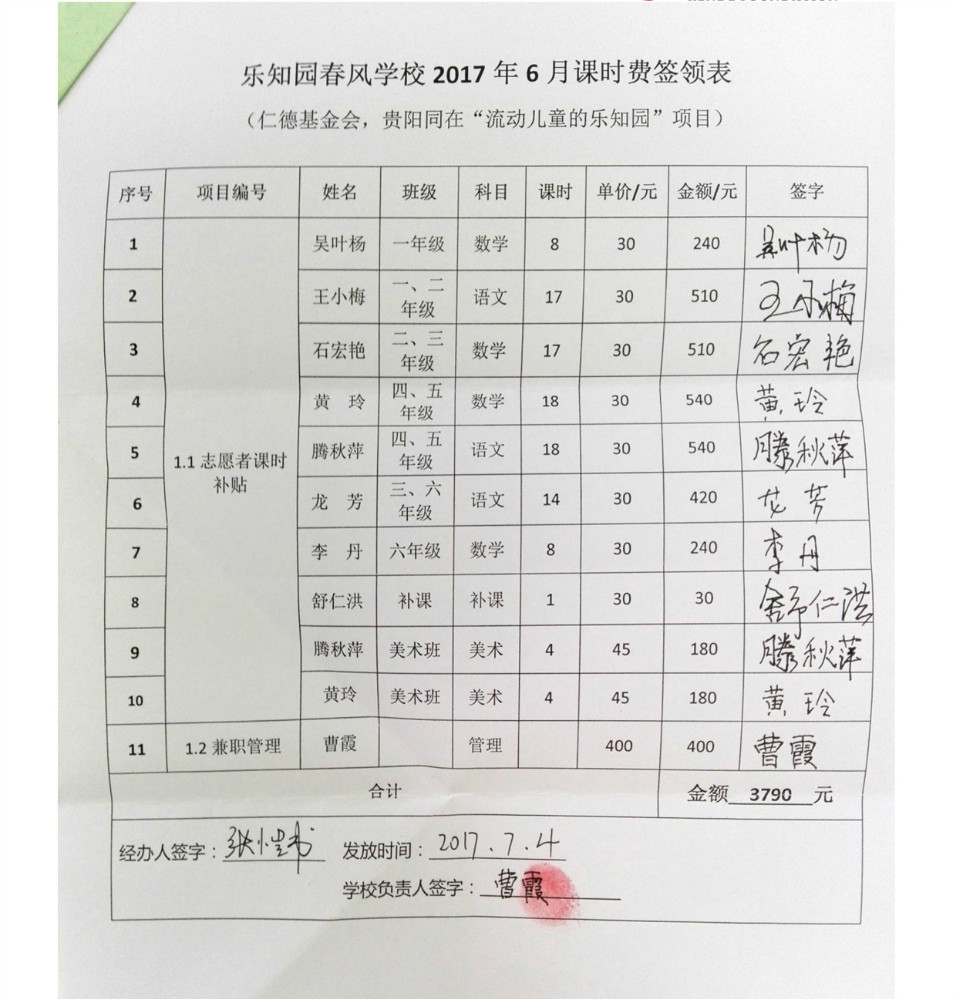 乐知园春风学校 2017 年 6 月课时费签领表
（仁德基金会，贵阳同在“流动儿童的乐知园”项目）
序号 项目编号 姓名 班级 科目 课时 单价/元 金额/元 签字
1 吴叶杨 一年级 数学 8 30 240 吴叶杨
2 王小梅 一、二年级 语文 17 30 510 王小梅
3 石宏艳 二、三年级 数学 17 30 510 石宏艳
4 黄 玲 四、五年级 数学 18 30 540 黄玲
1.1 志愿者课时补贴
5 腾秋萍 四、五年级 语文 18 30 540 滕秋萍
6 龙 芳 三、六年级 语文 14 30 420 龙芳
7 李 丹 六年级 数学 8 30 240 李丹
8 舒仁洪 补课 补课 1 30 30 舒仁洪
9 腾秋萍 美术班 美术 4 45 180 滕秋萍
10 黄玲 美术班 美术 4 45 180 黄玲
11 1.2 兼职管理 曹霞 管理 400 400 曹霞
合计 金额 3790 元
经办人签字： 发放时间：2017.7.4
学校负责人签字：曹霞